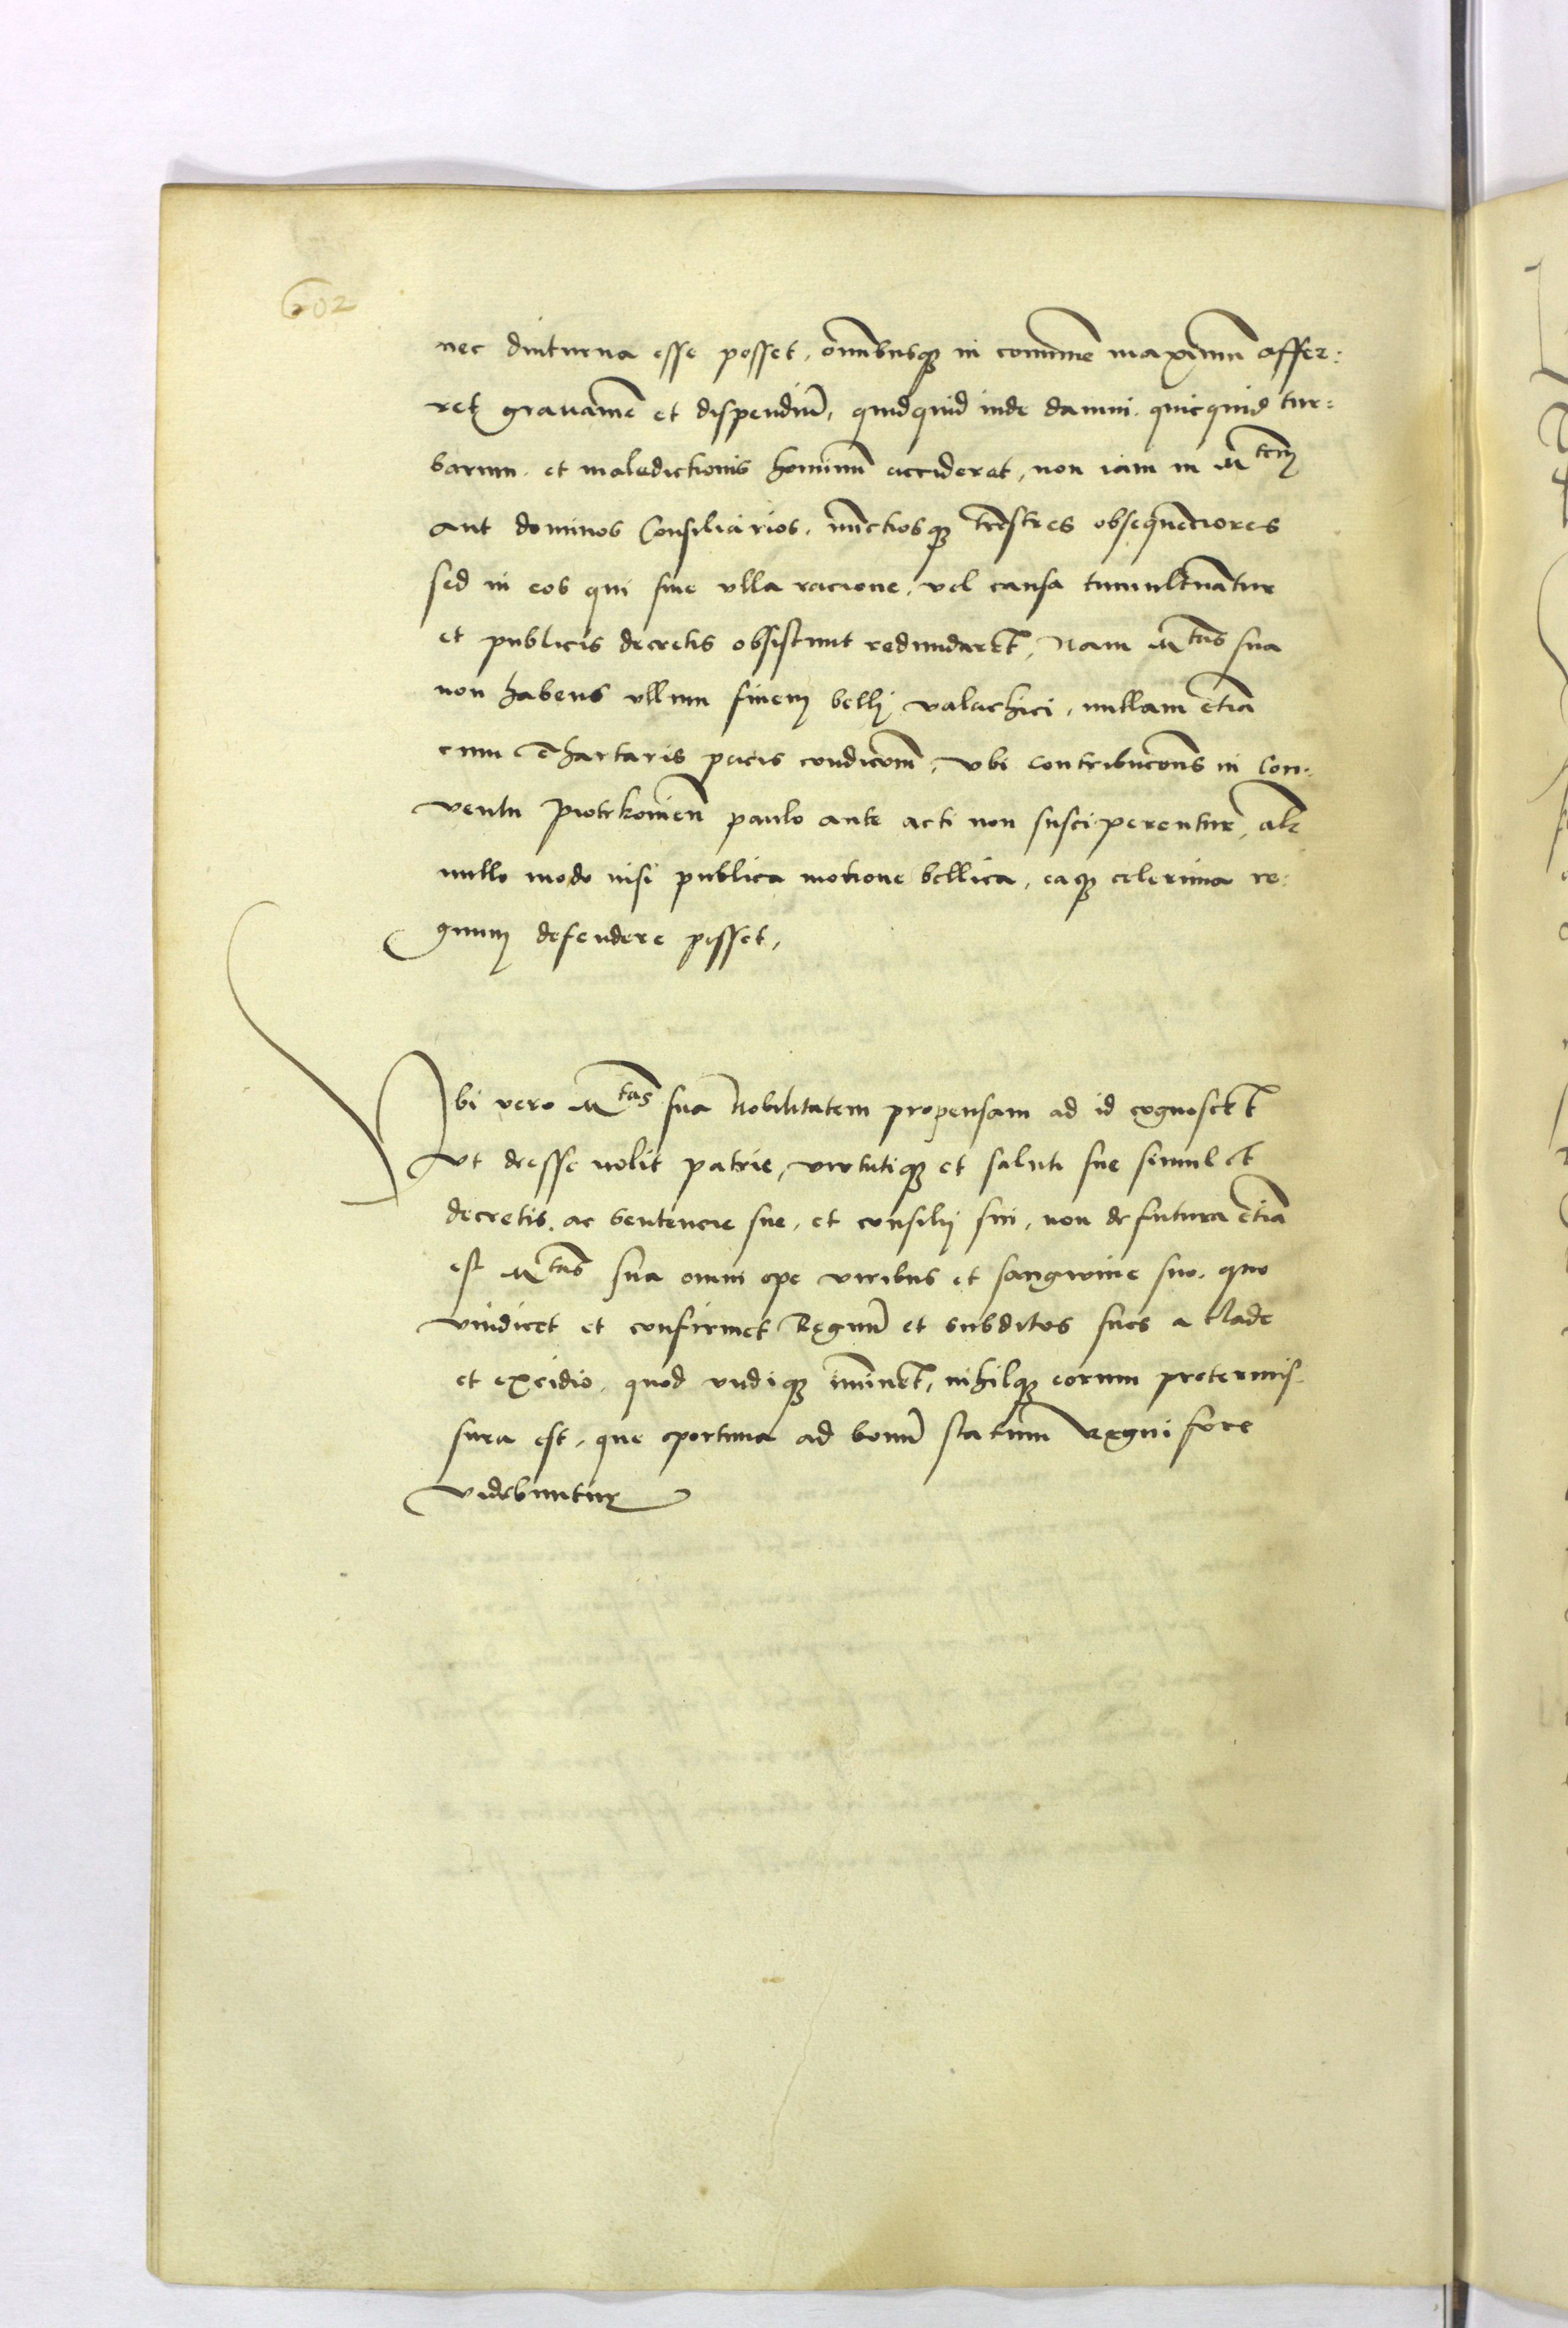 602
nec diuturna esse posset, om̃ibusq₃ in comune maximũ affer:
ret grauamẽ et dispendiũ, quidquid inde damni, quicquid tur:
barum et maledictionis hominũ accideret, non iam in Mtem
aut dominos Consiliarios, nũctiosq₃ tr̃estres obsequẽciores
sed in eos qui sine vlla racione, vel causa tumultuãtur
et publicis decretis obsistunt redundaret, Nam Mtas sua
non habens vllum finem belli valachici, nullam etiã
cum Thartaris pacis condicõm, vbi contribucõns in Con:
uentu piotrkouieñ paulo ante acti non susciperentur, alr̃
nullo modo nisi publica motione bellica, eaq₃ celerima re:
gnum defendere posset,
Vbi vero Mtas sua Nobilitatem propensam ad id cognoscet
vt deesse nolit patrie, virtutiq₃ et saluti sue simul et
decretis, ac sentencie sue, et consilij sui, non defutura etiã
est Mtas sua omni ope viribus et sangwine suo, quo
vindicet et confirmet Regnũ et subditos suos a clade
et excidio, quod vndiq₃ im̃inet, nihilq₃ eorum pretermis:
sura est, que oportuna ad bonũ statum regni fore
videbuntur